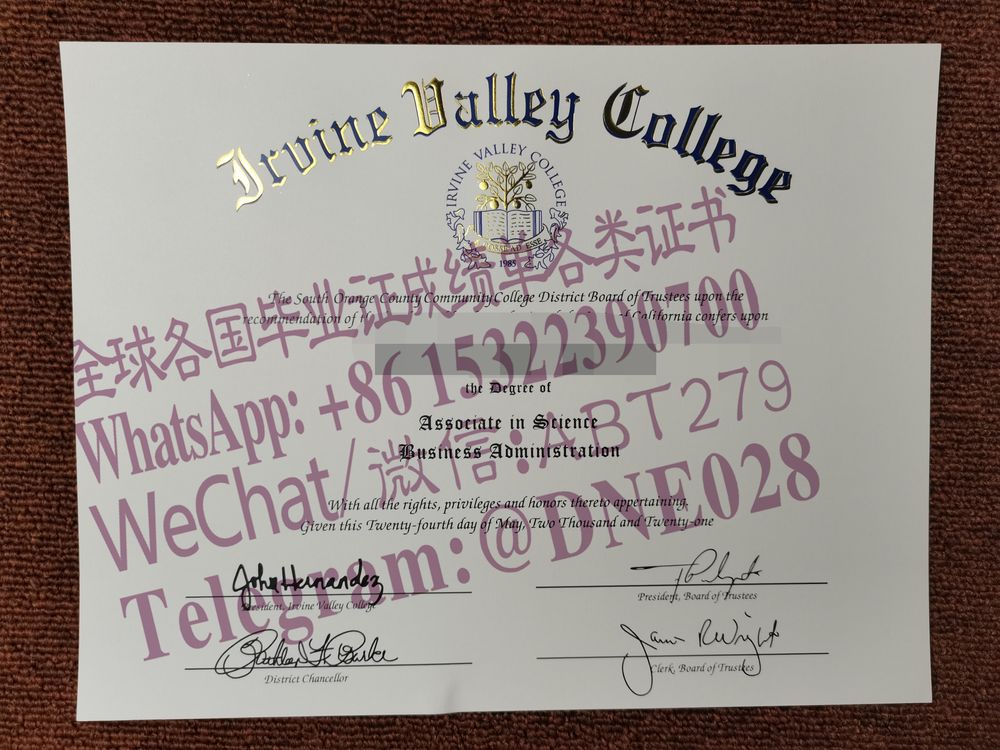 Irvine Valley College
IRVINE VALLEY COLLEGE
1985
全球各国毕业证成绩单各类证书
The South Orange County Community College District Board of Trustees upon the
recommendation of California confers upon
WhatsApp: +86 15322390700
the Degree of
Associate in Science
Business Administration
WeChat/微信:ABT279
With all the rights, privileges and honors thereto appertaining.
Given this Twenty-fourth day of May, Two Thousand and Twenty-one
Telegram:@DNE028
John Hernandez
President, Irvine Valley College
President, Board of Trustees
District Chancellor
Clerk, Board of Trustees